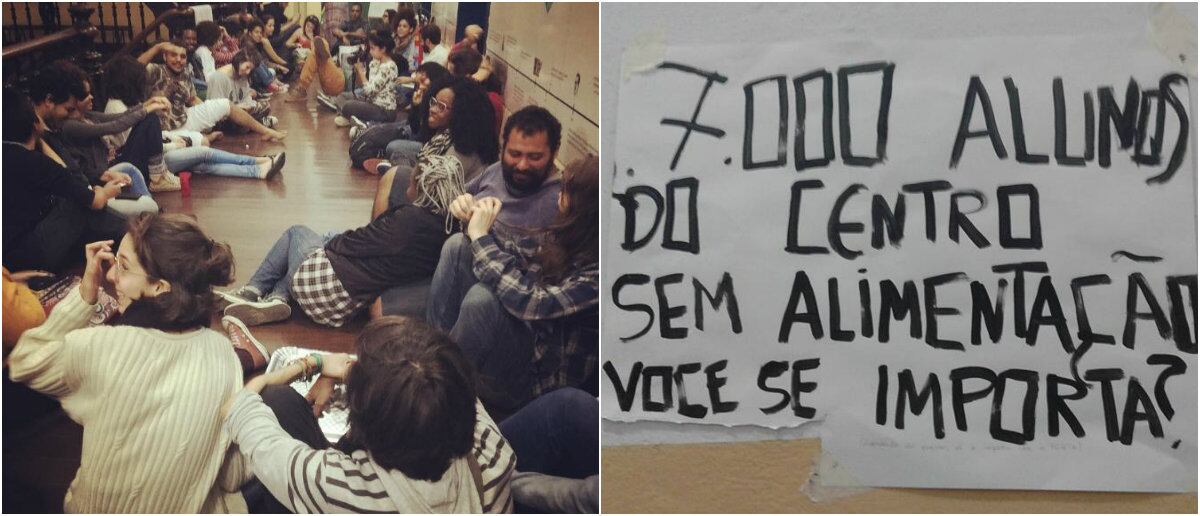 7.000 ALUNOS
DO CENTRO
SEM ALIMENTAÇÃO
VOCE SE IMPORTA?